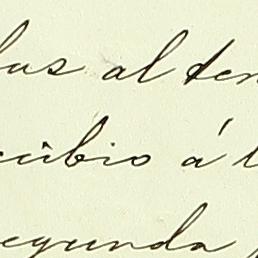 las al ten
cubio á l
segunda